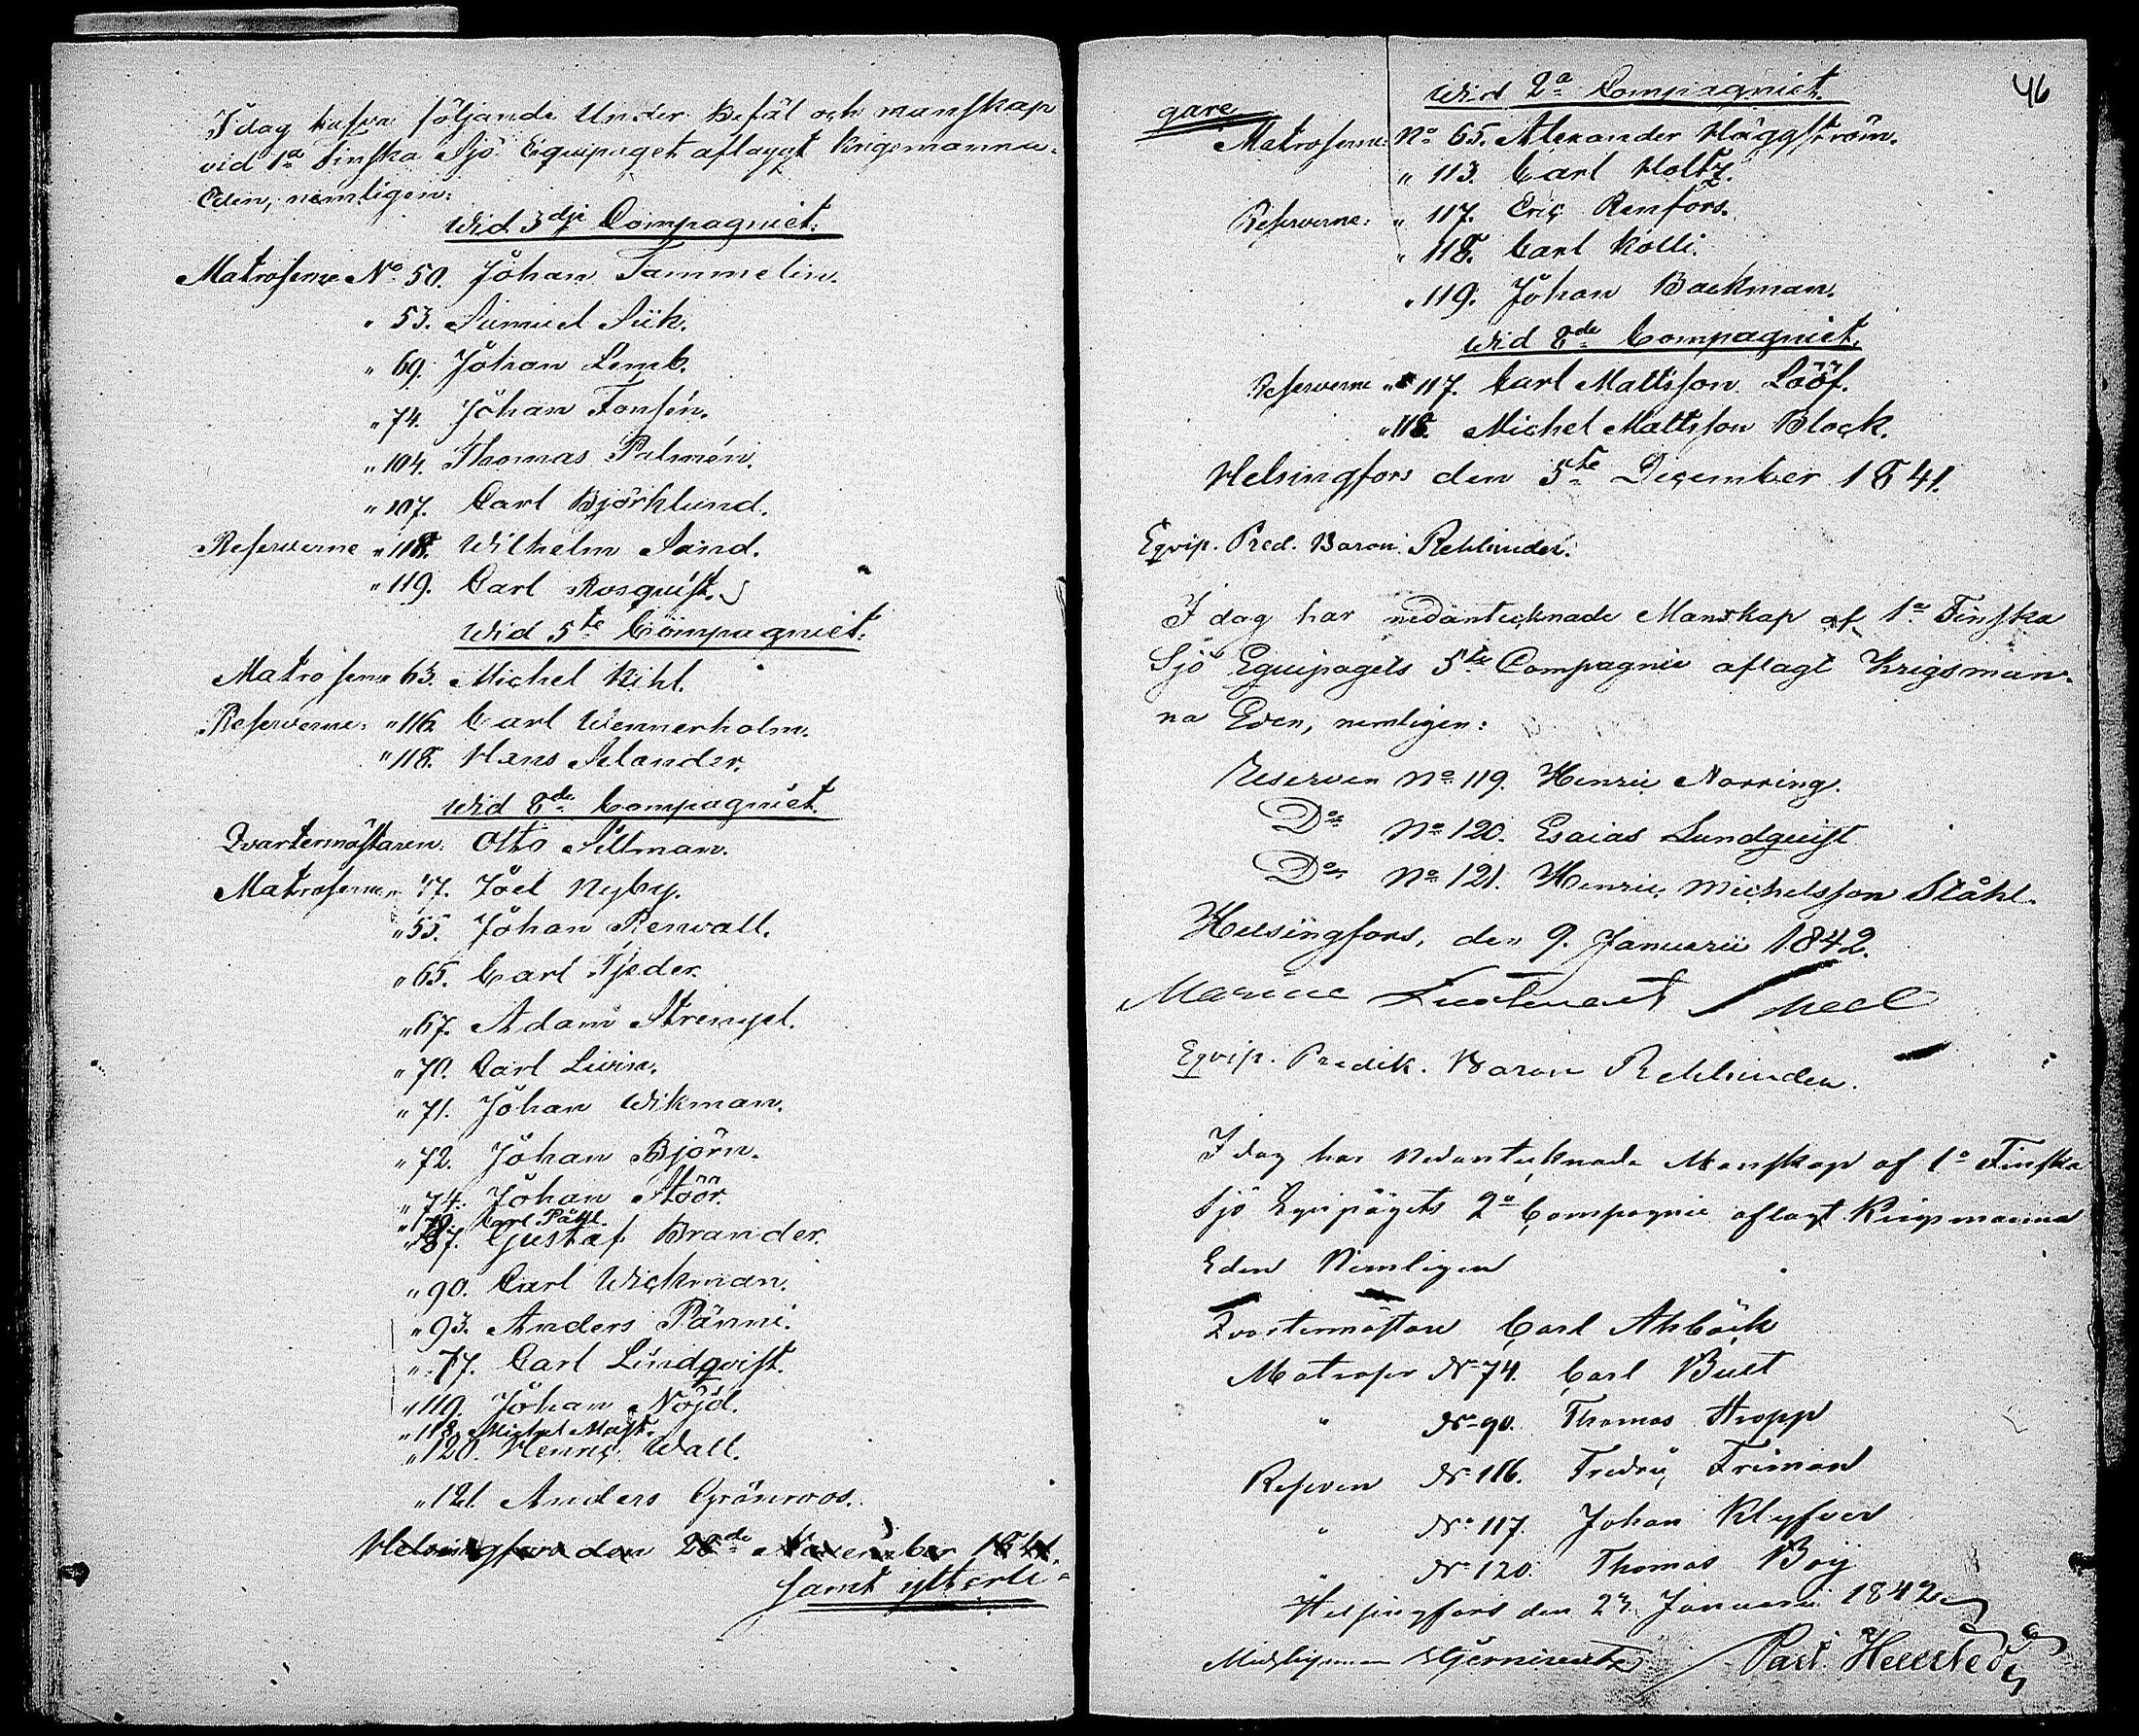 I dag hafva följande Under Befäl och manskap
vid 1a Finska Sjö Equipaget aflagyt Krigsmanna-
Eden, nemligen:
Wid 3dje Compagniet.
Matroserne No 50. Johan Tammelin.
" 53. Samuel Siik.
" 69. Johan Lemb.
" 74. Johan Fonsén.
" 104. Thomas Palmén.
" 107. Carl Björklund.
Reserverne " 118. Wilhelm Sand.
" 119. Carl Rosquist.
Wid 5te Compagniet.
Matroserne 63. Michel Kihl.
Reserverne: " 116. Carl Wennerholm.
" 118. Hans Selander.
Wid 8de Compagniet.
Qvartermästaren. Otto Sillman.
Matroserne " 47. Joel Nyby.
" 55. Johan Renvall.
" 65. Carl Tjeder.
" 67. Adam Strempel.
" 70. Carl Livin.
" 71. Johan Wikman.
" 72. Johan Björn.
" 74. Johan Stöör.
" 179. Carl Påhl.
" 87. Gustaf Brander.
" 90. Carl Wickman.
" 93. Anders Pänni.
" 77. Carl Lindqvist.
" 119. Johan Nöjd.
" 118. Michel Mast.
" 120. Henric Wall.
" 121. Anders Grönroos.
Helsingfors den 28de November 1841.
samt ytterli-
46
gare
Wid 2a Compagniet.
Matroserne: No 65. Alexander Häggström.
" 113. Carl Holtz.
Reserverne: " 117. Eric Renfors.
" 118. Carl Kolli.
" 119. Johan Backman.
Wid 8de Compagniet.
Reserverne " 117. Carl Mattsson Lööf.
" 118. Michel Mattsson Block.
Helsingfors den 5te December 1841.
Eqvip. Pred. Baron Rehbinder.
I dag har nedantecknade Manskap af 1a Finska
Sjö Equipagets 5te Compagnie aflagt Krigsman-
na Eden, nemligen:
Reserven No 119. Henric Norring.
Do No 120. Esaias Lundquist
Do No 121. Henric Michelsson Ståhl.
Helsingfors, den 9. Januarii 1842.
Marine Lieutenant
Eqvip. Predik. Baron Rehbinder.
I dag har Nedantecknade Manskap af 1a Finska
Sjö Eqvipagets 2a Compagnie aflagt Krigsmanna
Eden Nemligen
Qvartermästare Carl Ahlbäck
Matroser No 74. Carl Bult
" No 90. Thomas Stropp
Reserven No 116. Fredric Friman
" No 117. Johan Klyfver
" No 120. Thomas Boij
Helsingfors den 23. Januari 1842
Past. Hellsted